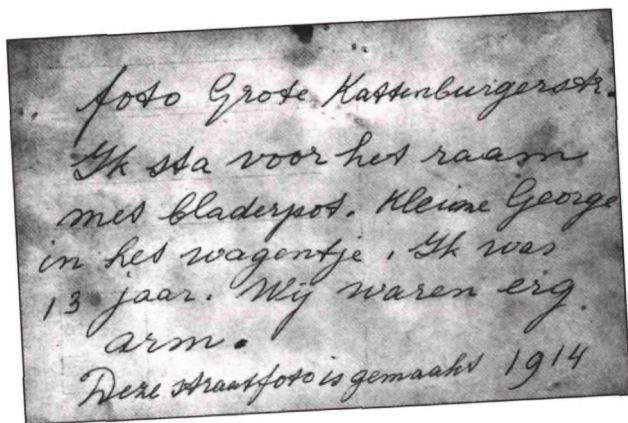 foto Grote Kattenburgerstr.
Ik sta voor het raam
met bladerpot. Kleine George
in het wagentje. Ik was
13 jaar. Wij waren erg
arm.
Deze straatfoto is gemaakt 1914